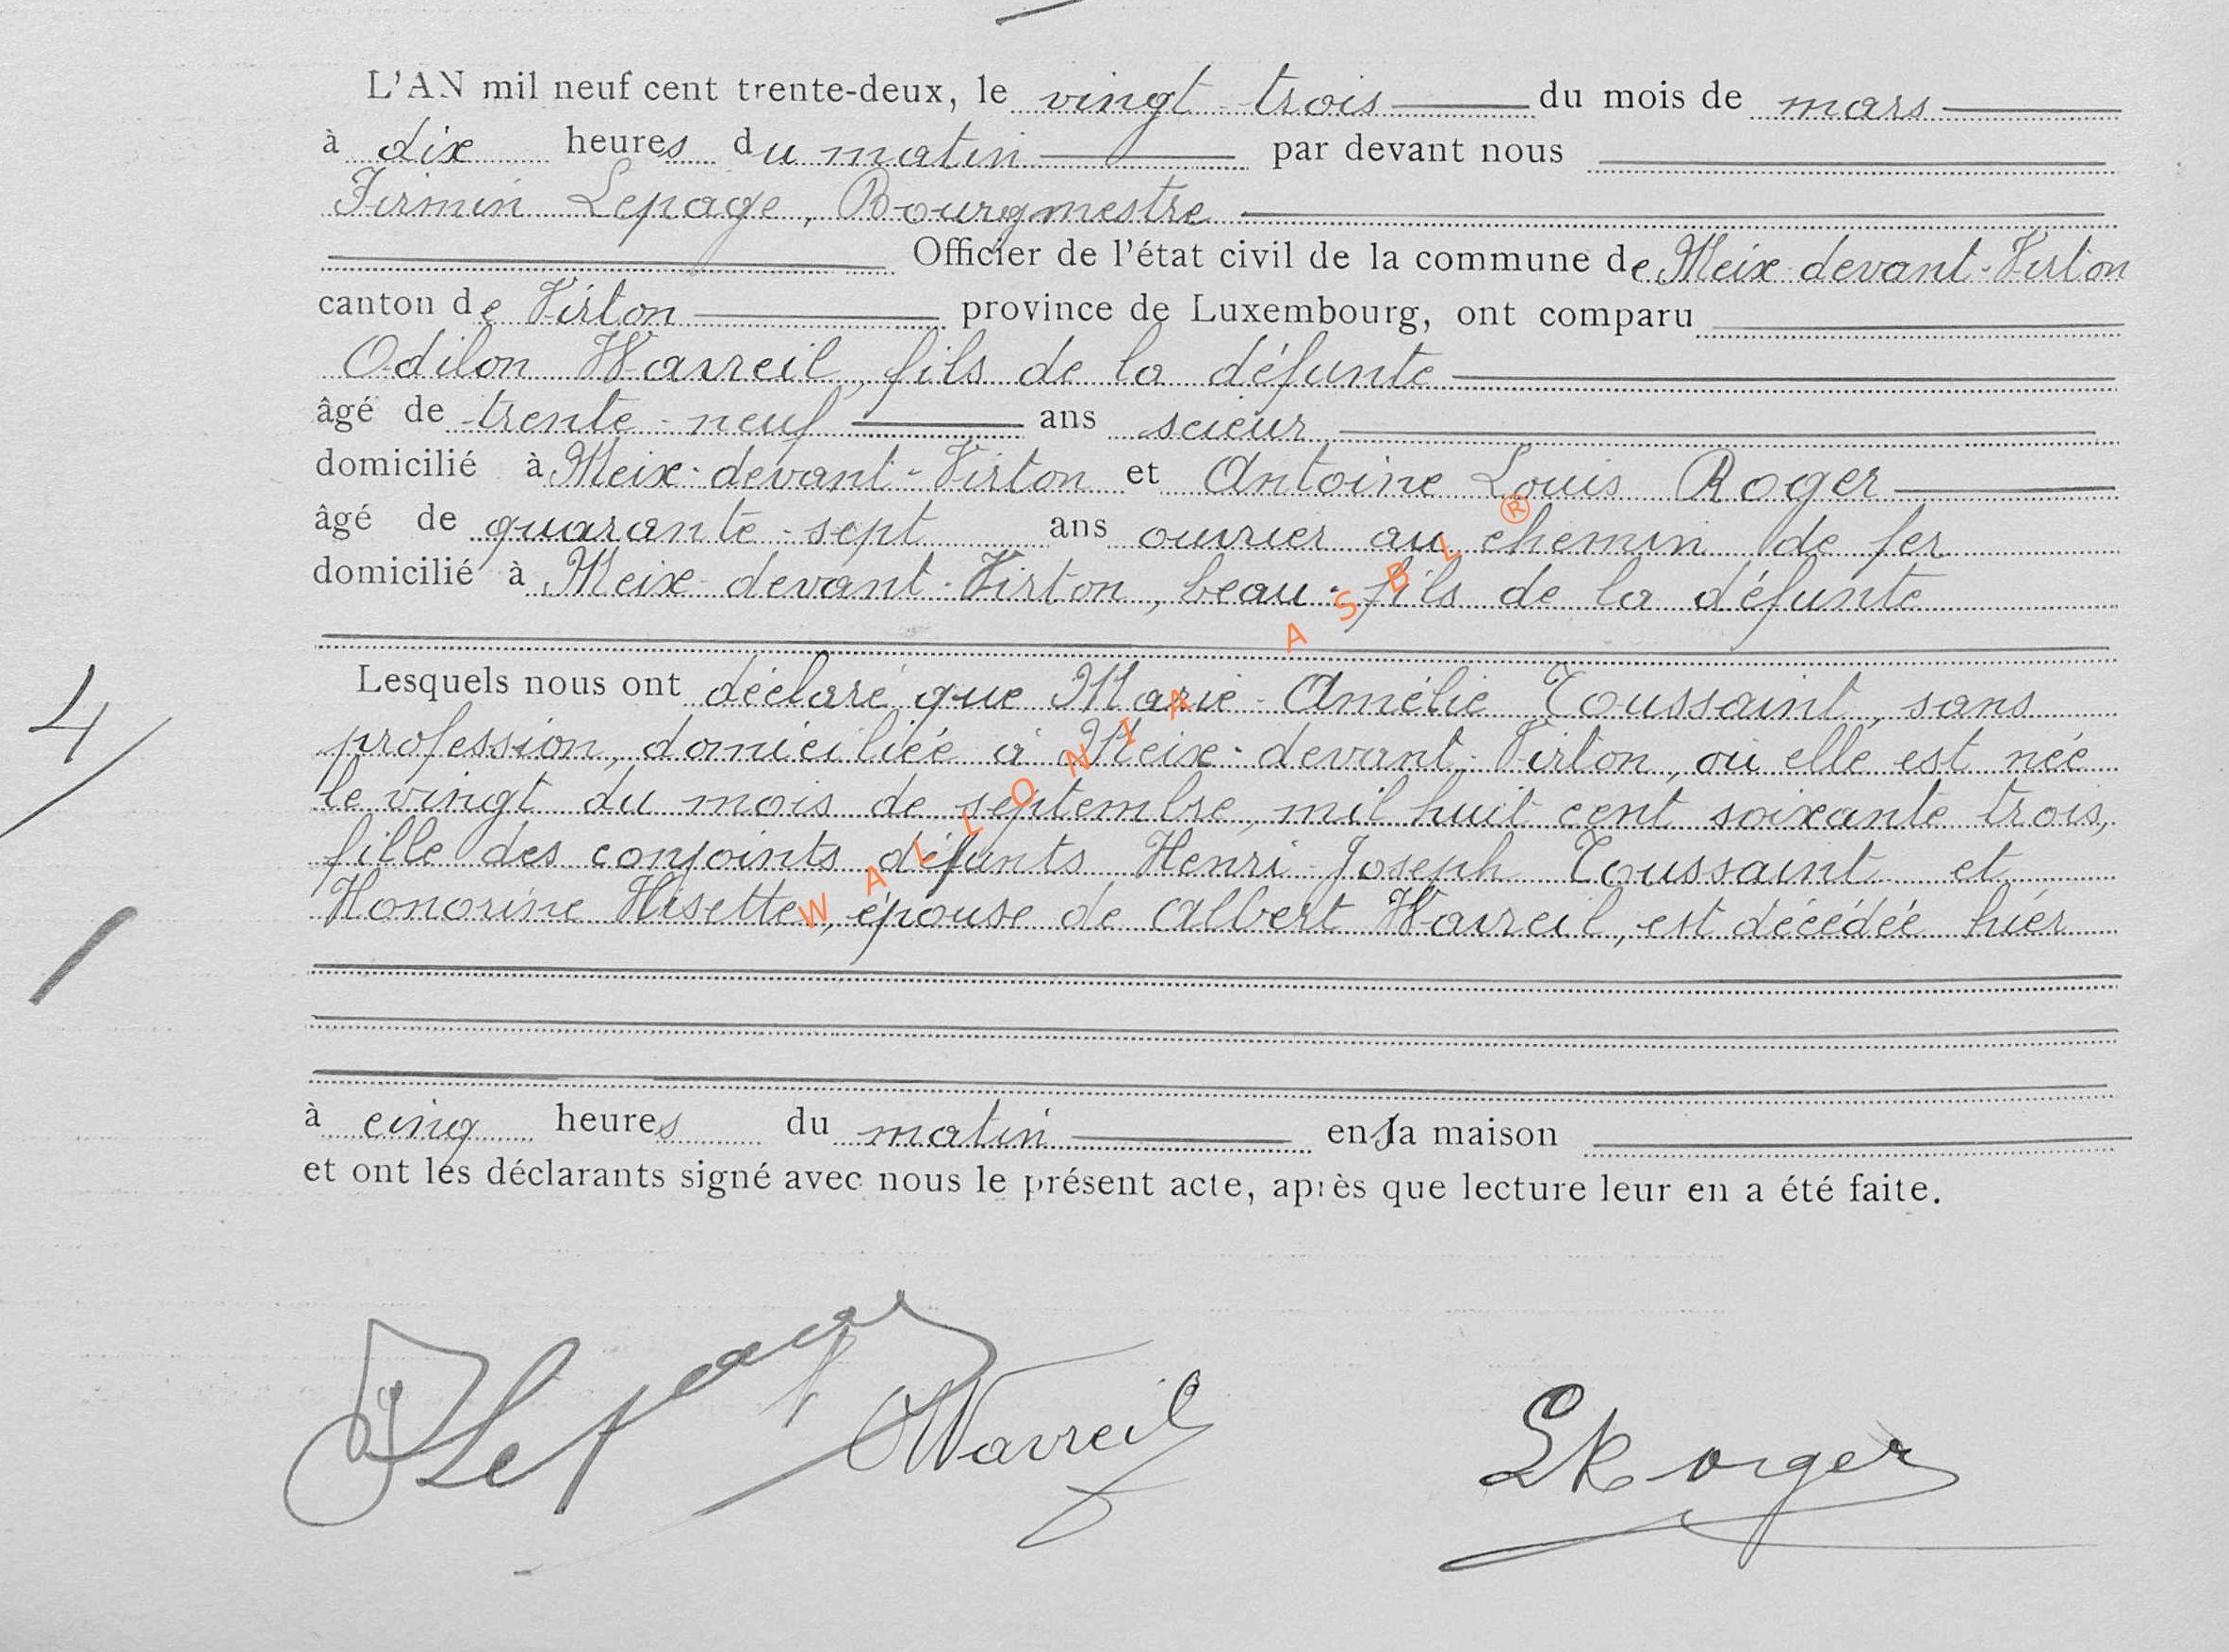 L'AN mil neuf cent trente-deux, le vingt-trois du mois de mars
à dix heures du matin par devant nous
Firmin Lepage, Bourgmestre
Officier de l'état civil de la commune de Meix-devant-Virton
canton de Virton province de Luxembourg, ont comparu
Odilon Wavreil, fils de la défunte
âgé de trente-neuf ans scieur
domicilié à Meix-devant-Virton et Antoine Louis Roger
âgé de quarante-sept ans ouvrier au chemin de fer
domicilié à Meix-devant-Virton, beau-fils de la défunte
Lesquels nous ont déclaré que Marie-Amélie Toussaint, sans
profession, domiciliée à Meix-devant-Virton, où elle est née
le vingt du mois de septembre, mil huit cent soixante trois,
fille des conjoints défunts Henri-Joseph Toussaint et
Honorine Hisette, épouse de Albert Wavreil, est décédée hier
à cinq heures du matin en sa maison
et ont les déclarants signé avec nous le présent acte, après que lecture leur en a été faite.
4
WALLONIA ASBL ®
F Lepage
O Wavreil
L Roger